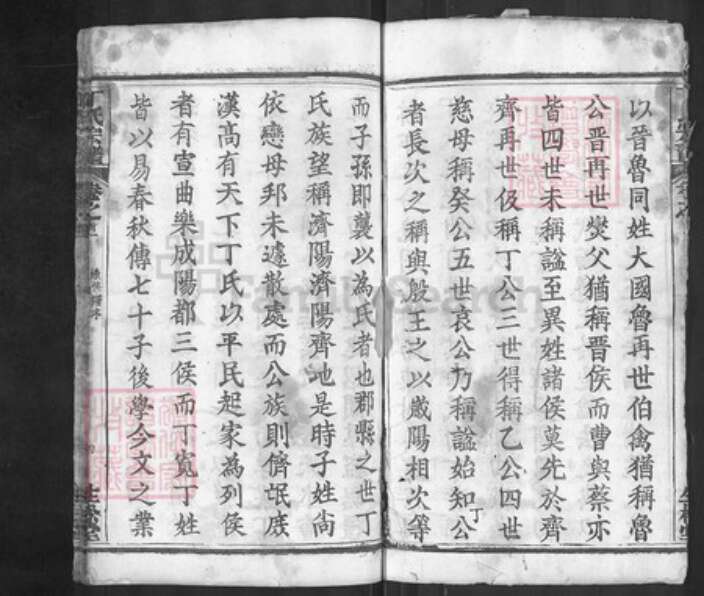 以晉魯同姓大國魯再世伯禽猶稱魯
公晉再世燮父猶稱晉侯而曹與蔡亦
皆四世未稱謚至異姓諸侯莫先於齊
齊再世伋稱丁公三世得稱乙公四世
慈母稱癸公五世哀公乃稱謚始知公
者長次之稱與殷王之以歲陽相次等
丁
而子孫即襲以為氏者也郡縣之世丁
氏族望稱濟陽濟陽齊地是時子姓尙
依戀母邦未遽散處而公族則儕氓庶
漢高有天下丁氏以平民起家為列侯
者有宣曲樂成陽都三侯而丁寬丁姓
皆以易春秋傳七十子後學今文之業
氏宗譜
卷之
FamilySearch